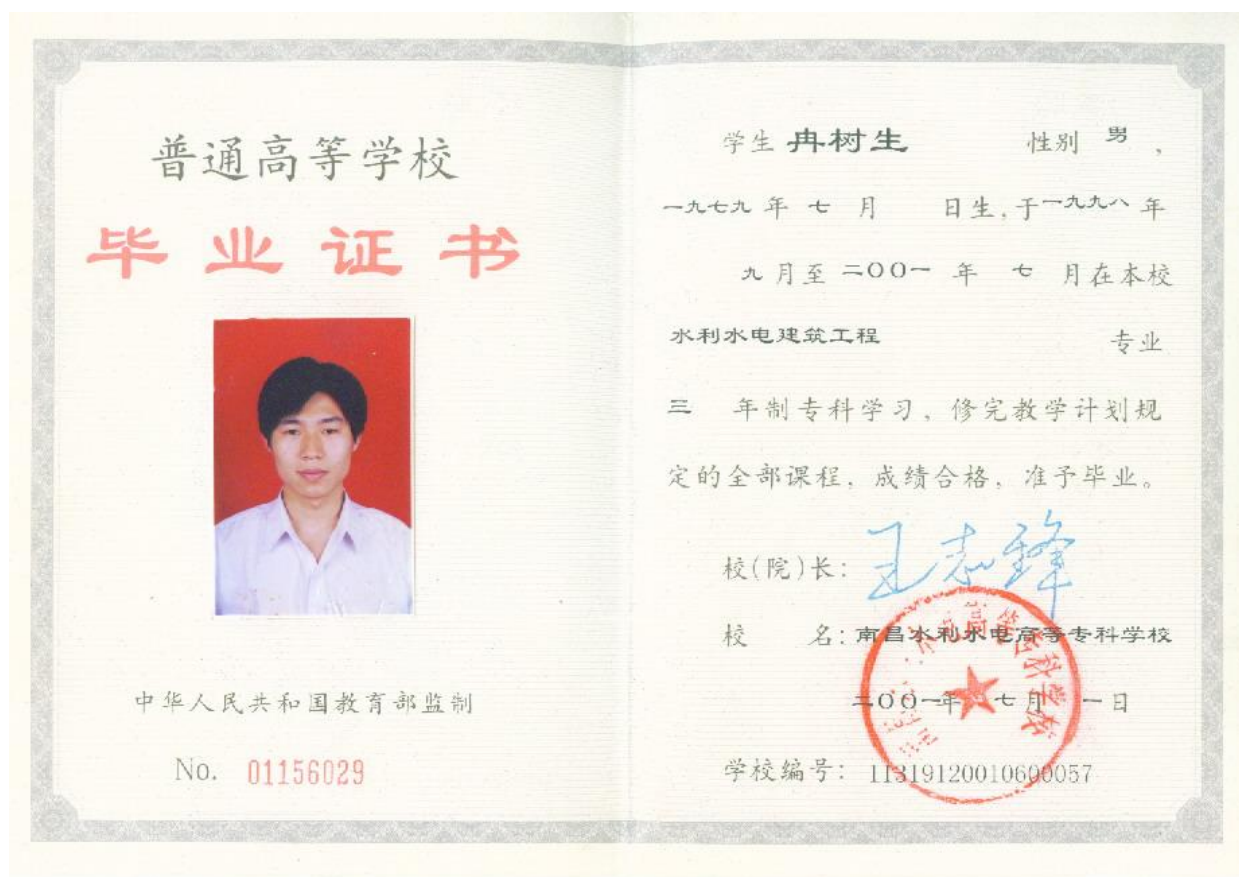 普通高等学校
毕业证书
中华人民共和国教育部监制
No. 01156029
学生 冉树生 性别 男,
一九七九 年 七 月 日生,于一九九八 年
九 月至 二〇〇一 年 七 月在本校
水利水电建筑工程 专业
三 年制专科学习,修完教学计划规
定的全部课程,成绩合格,准予毕业。
校(院)长:
校 名:南昌水利水电高等专科学校
二〇〇一年 七月 一日
学校编号: 11319120010600057